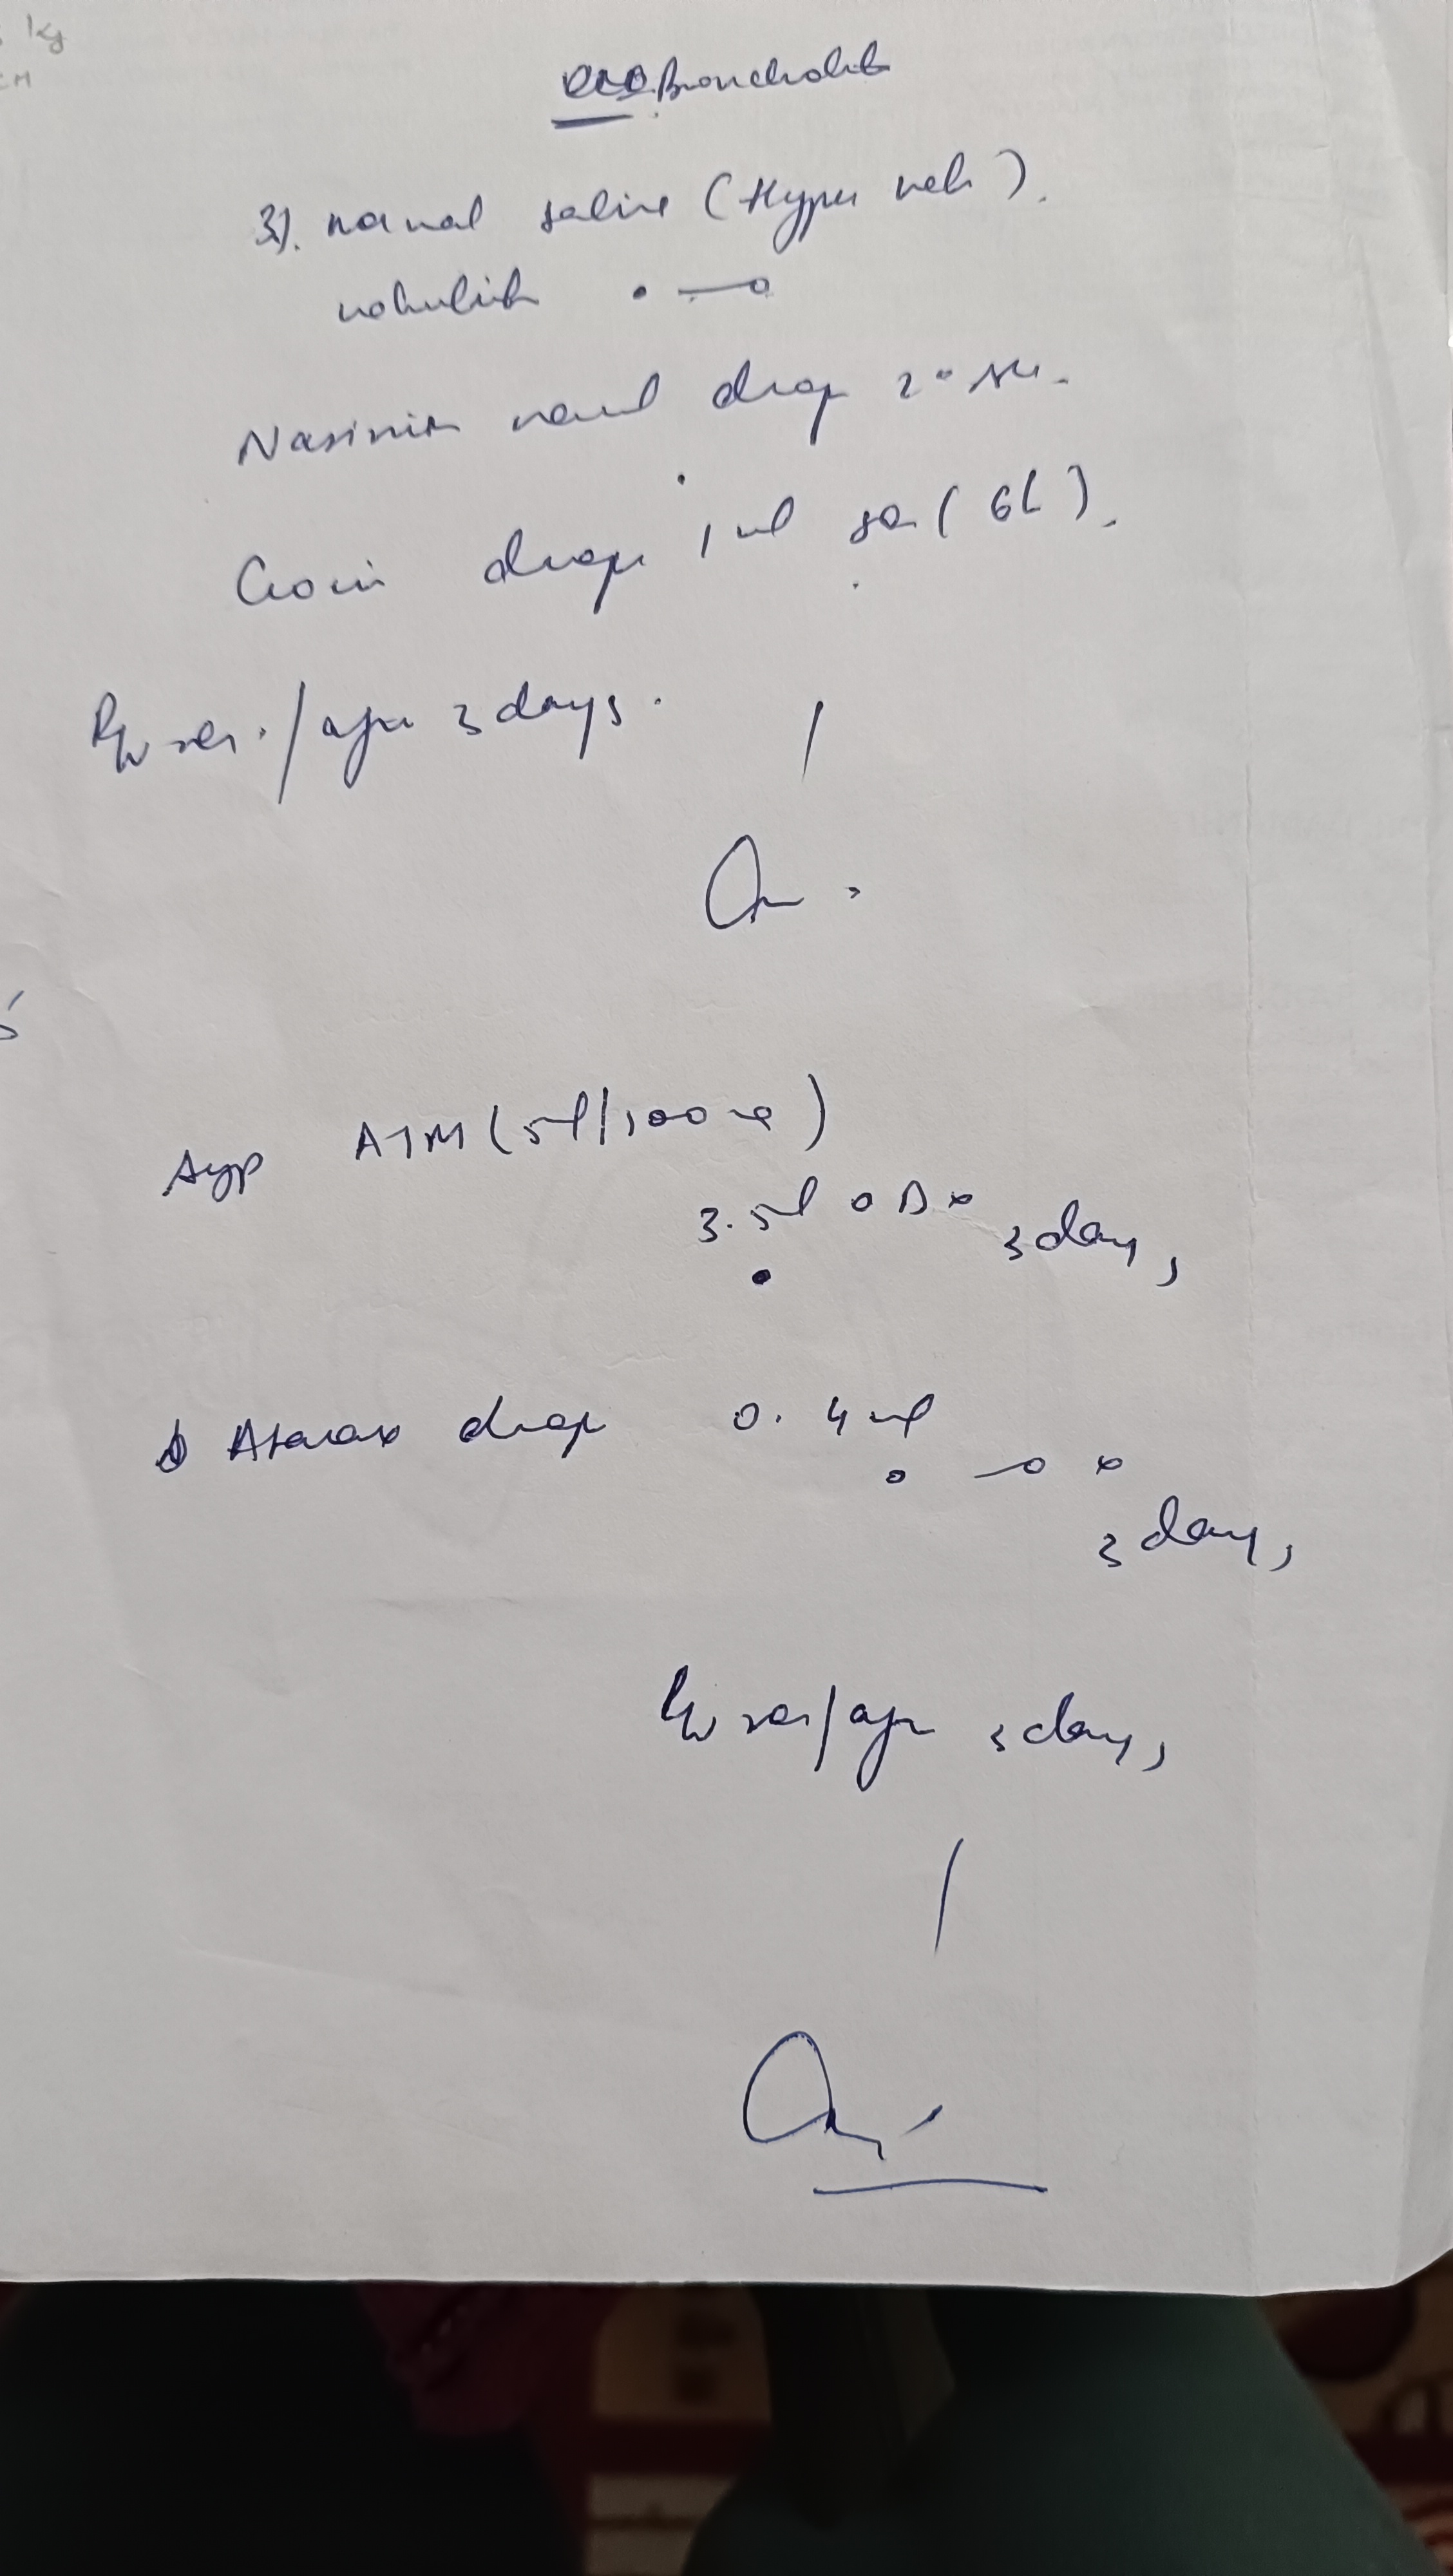 kg
CM
Bronchiolitis
3). normal saline (Hyper neb).
Nasivion nasal drop
Crocin drop 1 ml sos (6h).
Rw sos/after 3 days.
Syp ATM (5ml/100mg)
3.5ml OD x 3 days
Atarax drop 0.4 ml
x
3 days
Rw sos/after 3 days